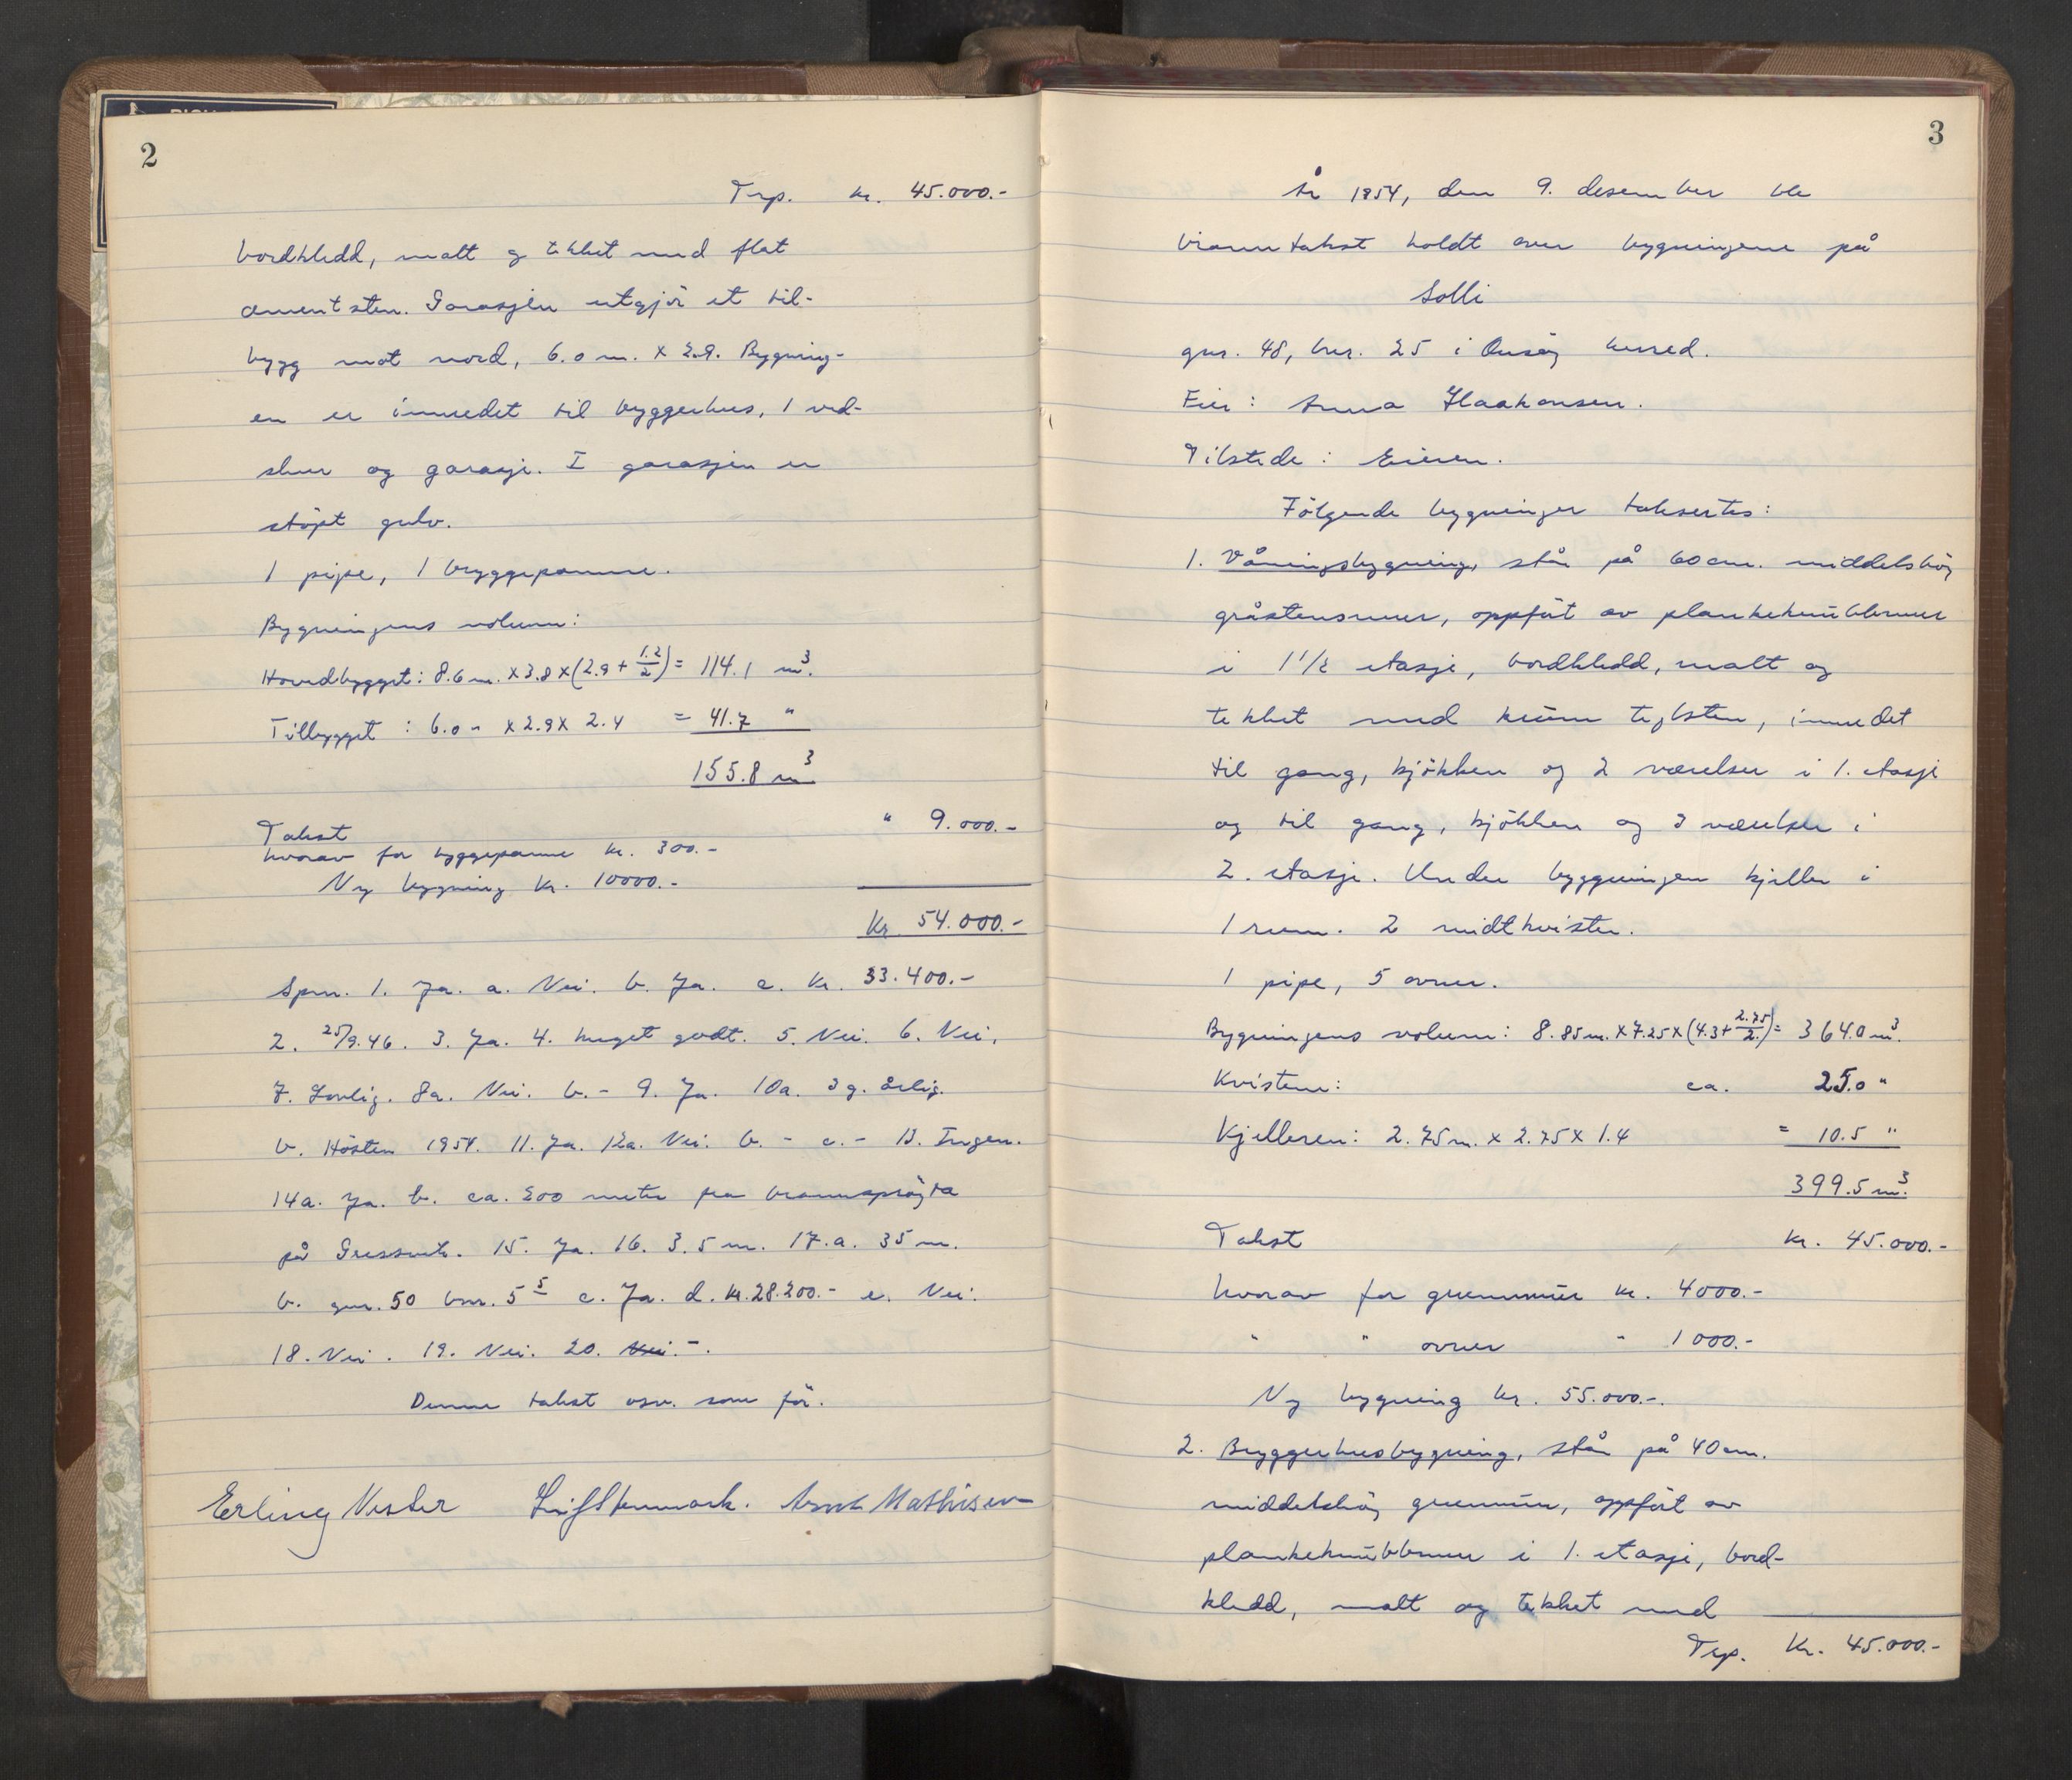 2
Trp. kr. 45.000.-
bordkledd, malt og tekket med flat
cementsten. Garasjen utgjör et til-
bygg mot nord, 6.0 m. x 2.9. Bygning-
en er innredet til bryggerhus, 1 ved-
skur og garasje. I garasjen er
stöpt gulv.
1 pipe, 1 bryggepanne.
Bygningens volum:
Hovedbygget: 8.6 m. x 3.8 x (2.9 + 1.2/2) = 114.1 m³.
Tilbygget : 6.0 " x 2.9 x 2.4 = 41.7 "
155.8 m³
Takst " 9.000.-
hvorav for bryggepanne kr. 300.-
Ny bygning kr. 10000.-
Kr. 54.000.-
Spm. 1. Ja. a. Nei. b. Ja. c. kr. 33.400.-
2. 25/9.46. 3. Ja. 4. Meget godt. 5. Nei. 6. Nei.
7. Lovlig. 8a. Nei. b. - 9. Ja. 10a. 3 g. årlig.
b. Hösten 1954. 11. Ja. 12a. Nei. b. - c. - 13. Ingen.
14a. Ja. b. ca. 200 meter fra brannspröyta
på Gressvik. 15. Ja. 16. 3.5 m. 17.a. 35 m.
b. gnr. 50 bnr. 5⁵ c. Ja. d. kr. 28.200.- e. Nei.
18. Nei. 19. Nei. 20. Nei. -.
Denne takst osv. som för.
Erling Vister Leif Stenmark. Arnt Mathisen
3
År 1954, den 9. desember ble
branntakst holdt over bygningene på
Solli
gnr. 48, bnr. 25 i Onsöy herred.
Eier: Anna Haakonsen.
Tilstede: Eieren.
Fölgende bygninger taksertes:
1. Våningsbygning, står på 60 cm. middelshöy
gråstensmur, oppfört av plankeknübbmur
i 1 1/2 etasje, bordkledd, malt og
tekket med krum teglsten, innredet
til gang, kjökken og 2 værelser i 1. etasje
og til gang, kjökken og 3 værelser i
2. etasje. Under byggningen kjeller i
1 rum. 2 midtkvister.
1 pipe, 5 ovner.
Bygningens volum: 8.85 m. x 7.25 x (4.3 + 2.75/2.) = 364.0 m³.
Kvistene: ca. 25.0 "
Kjelleren: 2.75 m. x 2.75 x 1.4 = 10.5 "
399.5 m³.
Takst kr. 45.000.-
hvorav for grunnmür kr. 4000.-
" " ovner " 1000.-
Ny bygning kr. 55.000.-.
2. Bryggerhusbygning, står på 40 cm.
middelshöy grunnmür, oppfört av
plankeknübbmur i 1. etasje, bord-
kledd, malt og tekket med
Trp. Kr. 45.000.-